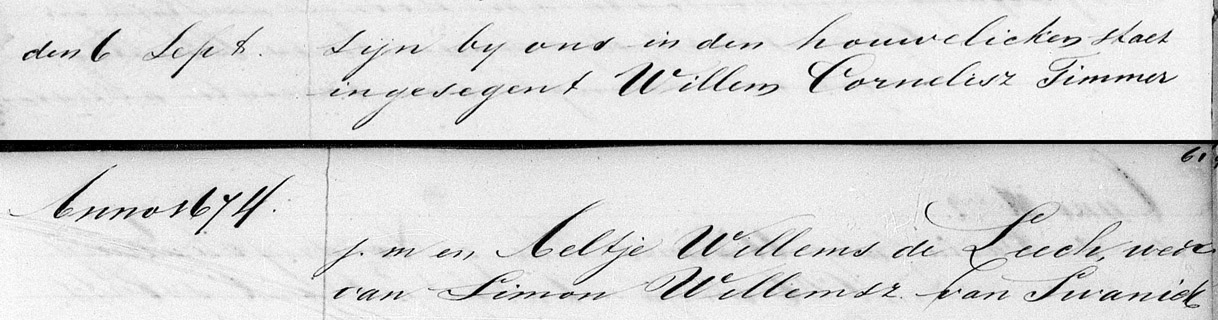 den 6 Sept. sijn by ons in den houwelicken staet
ingesegent Willem Cornelisz Timmer
61
Anno 1674.
j. m en Aeltje Willems de Leech, wede
van Simon Willemsz. van Swaniek